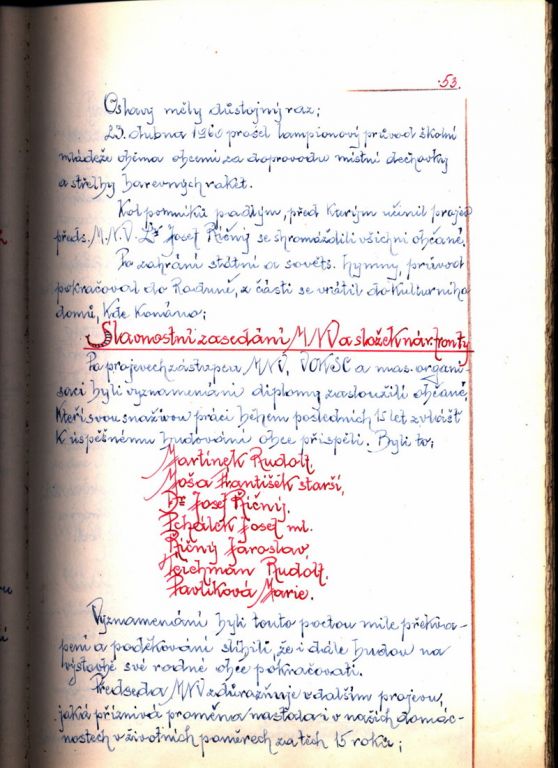 53.
Oslavy měly důstojný raz;
23. dubna 1960 prošel lampionový průvod školní
mládeže oběma obcemi za doprovodu místní dechovky
a střelby barevných raket.
Kol pomníků padlým, před kterým učinil projev
předs. M.N.V. Dr Josef Říčný se shromáždili všichni občané.
Po zahrání státní a sověts. hymny, průvod
pokračoval do Raduně, z části se vrátil do Kulturního
domu, kde konáno;
Slavnostní zasedání MNV a složek nár. fronty
Po projevech zástupců MNV, a mas. organi-
sací byli vyznamenáni diplomy zasloužilí občané,
kteří svou snaživou prácí během posledních 15 let zvlášť
k úspěšnému budování obce přispěli. Byli to;
Martinek Rudolf,
Moša František starší,
Dr Josef Říčný.
Pchálek Josef ml.
Říčný Jaroslav,
Teichman Rudolf.
Pavlíková Marie.
Vyznamenání byli touto poctou mile překva-
peni a poděkování slíbili, že i dále budou na
výstavbě své rodné obce pokračovati.
Předseda MNV zdůrazňuje v dalším projevu,
jaká příznivá proměna nastala i v našich domác-
nostech v životních poměrech za těch 15 roků;